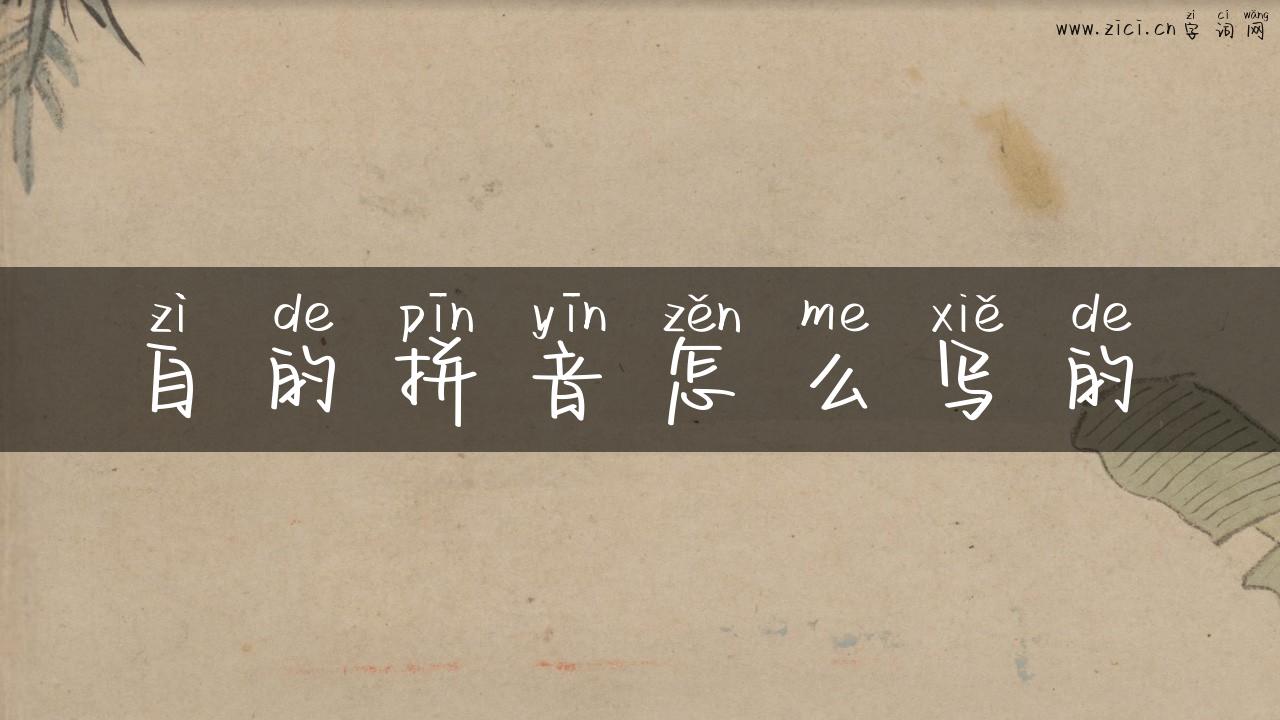 zì cí wǎng
www.zici.cn 字词网
zì de pīn yīn zěn me xiě de
自的拼音怎么写的